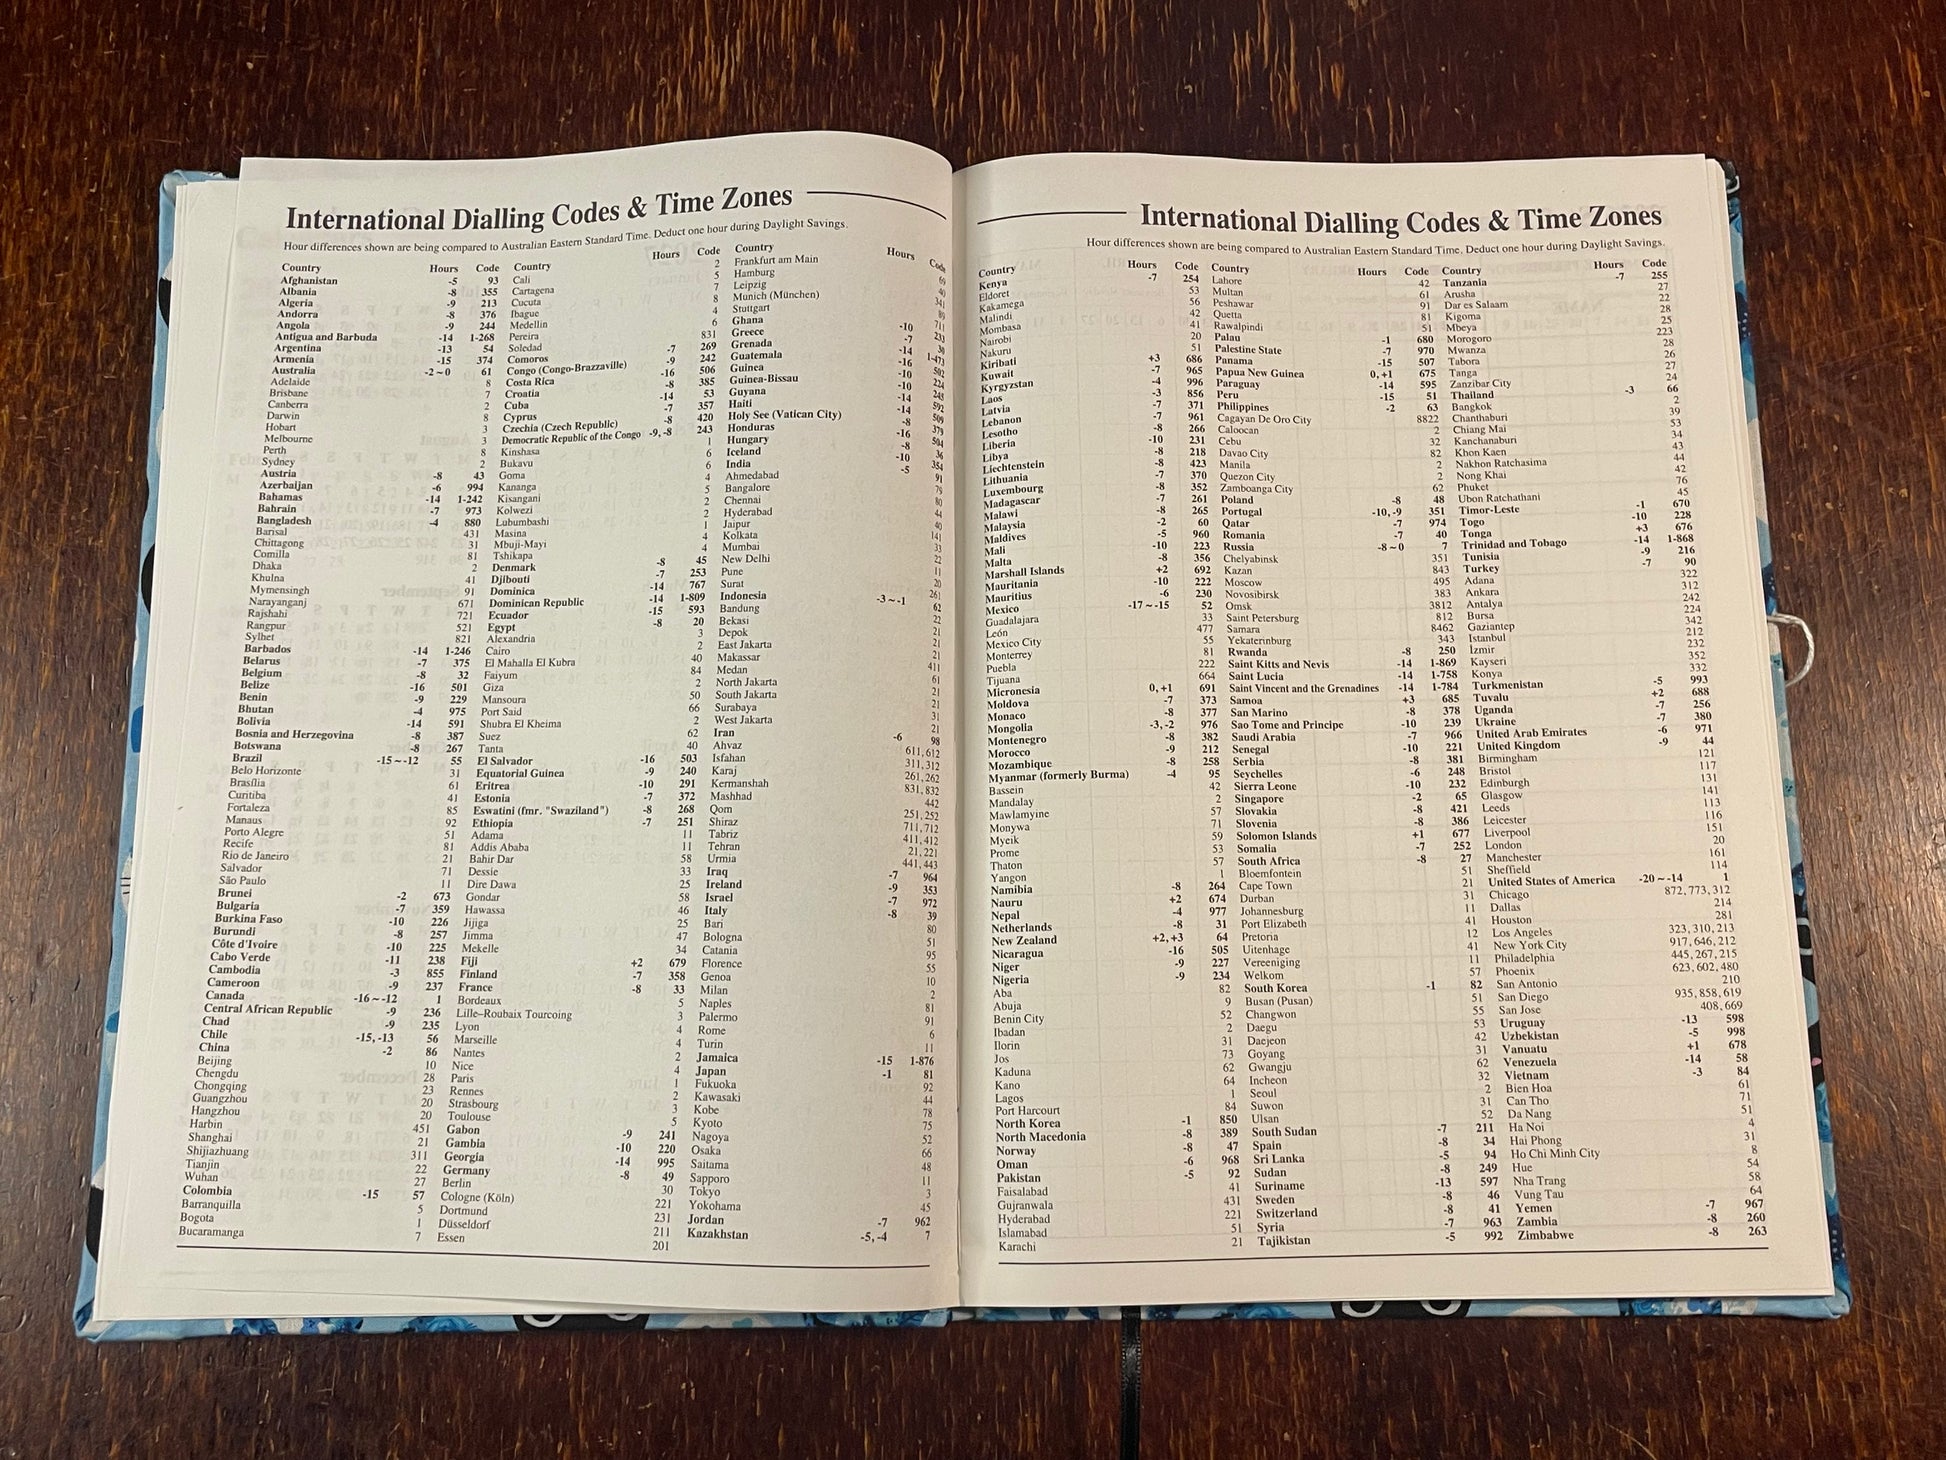 International Dialling Codes & Time Zones
Hour differences shown are being compared to Australian Eastern Standard Time. Deduct one hour during Daylight Savings.
Country Hours Code
Afghanistan -5 93
Albania -8 355
Algeria -9 213
Andorra -8 376
Angola -9 244
Antigua and Barbuda -14 1-268
Argentina -13 54
Armenia -15 374
Australia -2~0 61
Adelaide 8
Brisbane 7
Canberra 2
Darwin 8
Hobart 3
Melbourne 3
Perth 8
Sydney 2
Austria -8 43
Azerbaijan -6 994
Bahamas -14 1-242
Bahrain -7 973
Bangladesh -4 880
Barisal 431
Chittagong 31
Comilla 81
Dhaka 2
Khulna 41
Mymensingh 91
Narayanganj 671
Rajshahi 721
Rangpur 521
Sylhet 821
Barbados -14 1-246
Belarus -7 375
Belgium -8 32
Belize -16 501
Benin -9 229
Bhutan -4 975
Bolivia -14 591
Bosnia and Herzegovina -8 387
Botswana -8 267
Brazil -15~-12 55
Belo Horizonte 31
Brasília 61
Curitiba 41
Fortaleza 85
Manaus 92
Porto Alegre 51
Recife 81
Rio de Janeiro 21
Salvador 71
São Paulo 11
Brunei -2 673
Bulgaria -7 359
Burkina Faso -10 226
Burundi -8 257
Côte d'Ivoire -10 225
Cabo Verde -11 238
Cambodia -3 855
Cameroon -9 237
Canada -16~-12 1
Central African Republic -9 236
Chad -9 235
Chile -15,-13 56
China -2 86
Beijing 10
Chengdu 28
Chongqing 23
Guangzhou 20
Hangzhou 20
Harbin 451
Shanghai 21
Shijiazhuang 311
Tianjin 22
Wuhan 27
Colombia -15 57
Barranquilla 5
Bogota 1
Bucaramanga 7
Country Hours Code
Cali 2
Cartagena 5
Cucuta 7
Ibague 8
Medellin 4
Pereira 6
Soledad 831
Comoros -7 269
Congo (Congo-Brazzaville) -9 242
Costa Rica -16 506
Croatia -8 385
Cuba -14 53
Cyprus -7 357
Czechia (Czech Republic) -8 420
Democratic Republic of the Congo -9,-8 243
Kinshasa 1
Bukavu 6
Goma 6
Kananga 4
Kisangani 5
Kolwezi 2
Lubumbashi 2
Masina 1
Mbuji-Mayi 4
Tshikapa 4
Denmark -8 45
Djibouti -7 253
Dominica -14 767
Dominican Republic -14 1-809
Ecuador -15 593
Egypt -8 20
Alexandria 3
Cairo 2
El Mahalla El Kubra 40
Faiyum 84
Giza 2
Mansoura 50
Port Said 66
Shubra El Kheima 2
Suez 62
Tanta 40
El Salvador -16 503
Equatorial Guinea -9 240
Eritrea -10 291
Estonia -7 372
Eswatini (fmr. "Swaziland") -8 268
Ethiopia -7 251
Adama 11
Addis Ababa 11
Bahir Dar 58
Dessie 33
Dire Dawa 25
Gondar 58
Hawassa 46
Jijiga 25
Jimma 47
Mekelle 34
Fiji +2 679
Finland -7 358
France -8 33
Bordeaux 5
Lille–Roubaix Tourcoing 3
Lyon 4
Marseille 4
Nantes 2
Nice 4
Paris 1
Rennes 2
Strasbourg 3
Toulouse 5
Gabon -9 241
Gambia -10 220
Georgia -14 995
Germany -8 49
Berlin 30
Cologne (Köln) 221
Dortmund 231
Düsseldorf 211
Essen 201
Country Hours Code
Frankfurt am Main 69
Hamburg 40
Leipzig 341
Munich (München) 89
Stuttgart 711
Ghana -10 233
Greece -7 30
Grenada -14 1-473
Guatemala -16 502
Guinea -10 224
Guinea-Bissau -10 245
Guyana -14 592
Haiti -14 509
Holy See (Vatican City) -8 379
Honduras -16 504
Hungary -8 36
Iceland -10 354
India -5 91
Ahmedabad 79
Bangalore 80
Chennai 44
Hyderabad 40
Jaipur 141
Kolkata 33
Mumbai 22
New Delhi 11
Pune 20
Surat 261
Indonesia -3~-1 62
Bandung 22
Bekasi 21
Depok 21
East Jakarta 21
Makassar 411
Medan 61
North Jakarta 21
South Jakarta 21
Surabaya 31
West Jakarta 21
Iran -6 98
Ahvaz 611,612
Isfahan 311,312
Karaj 261,262
Kermanshah 831,832
Mashhad 442
Qom 251,252
Shiraz 711,712
Tabriz 411,412
Tehran 21,221
Urmia 441,443
Iraq -7 964
Ireland -9 353
Israel -7 972
Italy -8 39
Bari 80
Bologna 51
Catania 95
Florence 55
Genoa 10
Milan 2
Naples 81
Palermo 91
Rome 6
Turin 11
Jamaica -15 1-876
Japan -1 81
Fukuoka 92
Kawasaki 44
Kobe 78
Kyoto 75
Nagoya 52
Osaka 66
Saitama 48
Sapporo 11
Tokyo 3
Yokohama 45
Jordan -7 962
Kazakhstan -5,-4 7
International Dialling Codes & Time Zones
Hour differences shown are being compared to Australian Eastern Standard Time. Deduct one hour during Daylight Savings.
Country Hours Code
Kenya -7 254
Eldoret 53
Kakamega 56
Malindi 42
Mombasa 41
Nairobi 20
Nakuru 51
Kiribati +3 686
Kuwait -7 965
Kyrgyzstan -4 996
Laos -3 856
Latvia -7 371
Lebanon -7 961
Lesotho -8 266
Liberia -10 231
Libya -8 218
Liechtenstein -8 423
Lithuania -7 370
Luxembourg -8 352
Madagascar -7 261
Malawi -8 265
Malaysia -2 60
Maldives -5 960
Mali -10 223
Malta -8 356
Marshall Islands +2 692
Mauritania -10 222
Mauritius -6 230
Mexico -17~-15 52
Guadalajara 33
León 477
Mexico City 55
Monterrey 81
Puebla 222
Tijuana 664
Micronesia 0,+1 691
Moldova -7 373
Monaco -8 377
Mongolia -3,-2 976
Montenegro -8 382
Morocco -9 212
Mozambique -8 258
Myanmar (formerly Burma) -4 95
Bassein 42
Mandalay 2
Mawlamyine 57
Monywa 71
Myeik 59
Prome 53
Thaton 57
Yangon 1
Namibia -8 264
Nauru +2 674
Nepal -4 977
Netherlands -8 31
New Zealand +2,+3 64
Nicaragua -16 505
Niger -9 227
Nigeria -9 234
Aba 82
Abuja 9
Benin City 52
Ibadan 2
Ilorin 31
Jos 73
Kaduna 62
Kano 64
Lagos 1
Port Harcourt 84
North Korea -1 850
North Macedonia -8 389
Norway -8 47
Oman -6 968
Pakistan -5 92
Faisalabad 41
Gujranwala 431
Hyderabad 221
Islamabad 51
Karachi 21
Country Hours Code
Lahore 42
Multan 61
Peshawar 91
Quetta 81
Rawalpindi 51
Palau -1 680
Palestine State -7 970
Panama -15 507
Papua New Guinea 0,+1 675
Paraguay -14 595
Peru -15 51
Philippines -2 63
Cagayan De Oro City 8822
Caloocan 2
Cebu 32
Davao City 82
Manila 2
Quezon City 2
Zamboanga City 62
Poland -8 48
Portugal -10,-9 351
Qatar -7 974
Romania -7 40
Russia -8~0 7
Chelyabinsk 351
Kazan 843
Moscow 495
Novosibirsk 383
Omsk 3812
Saint Petersburg 812
Samara 8462
Yekaterinburg 343
Rwanda -8 250
Saint Kitts and Nevis -14 1-869
Saint Lucia -14 1-758
Saint Vincent and the Grenadines -14 1-784
Samoa +3 685
San Marino -8 378
Sao Tome and Principe -10 239
Saudi Arabia -7 966
Senegal -10 221
Serbia -8 381
Seychelles -6 248
Sierra Leone -10 232
Singapore -2 65
Slovakia -8 421
Slovenia -8 386
Solomon Islands +1 677
Somalia -7 252
South Africa -8 27
Bloemfontein 51
Cape Town 21
Durban 31
Johannesburg 11
Port Elizabeth 41
Pretoria 12
Uitenhage 41
Vereeniging 11
Welkom 57
South Korea -1 82
Busan (Pusan) 51
Changwon 55
Daegu 53
Daejeon 42
Goyang 31
Gwangju 62
Incheon 32
Seoul 2
Suwon 31
Ulsan 52
South Sudan -7 211
Spain -8 34
Sri Lanka -5 94
Sudan -8 249
Suriname -13 597
Sweden -8 46
Switzerland -8 41
Syria -7 963
Tajikistan -5 992
Country Hours Code
Tanzania -7 255
Arusha 27
Dar es Salaam 22
Kigoma 28
Mbeya 25
Morogoro 223
Mwanza 28
Tabora 26
Tanga 27
Zanzibar City 24
Thailand -3 66
Bangkok 2
Chanthaburi 39
Chiang Mai 53
Kanchanaburi 34
Khon Kaen 43
Nakhon Ratchasima 44
Nong Khai 42
Phuket 76
Ubon Ratchathani 45
Timor-Leste -1 670
Togo -10 228
Tonga +3 676
Trinidad and Tobago -14 1-868
Tunisia -9 216
Turkey -7 90
Adana 322
Ankara 312
Antalya 242
Bursa 224
Gaziantep 342
Istanbul 212
İzmir 232
Kayseri 352
Konya 332
Turkmenistan -5 993
Tuvalu +2 688
Uganda -7 256
Ukraine -7 380
United Arab Emirates -6 971
United Kingdom -9 44
Birmingham 121
Bristol 117
Edinburgh 131
Glasgow 141
Leeds 113
Leicester 116
Liverpool 151
London 20
Manchester 161
Sheffield 114
United States of America -20~-14 1
Chicago 872,773,312
Dallas 214
Houston 281
Los Angeles 323,310,213
New York City 917,646,212
Philadelphia 445,267,215
Phoenix 623,602,480
San Antonio 210
San Diego 935,858,619
San Jose 408,669
Uruguay -13 598
Uzbekistan -5 998
Vanuatu +1 678
Venezuela -14 58
Vietnam -3 84
Bien Hoa 61
Can Tho 71
Da Nang 51
Ha Noi 4
Hai Phong 31
Ho Chi Minh City 8
Hue 54
Nha Trang 58
Vung Tau 64
Yemen -7 967
Zambia -8 260
Zimbabwe -8 263